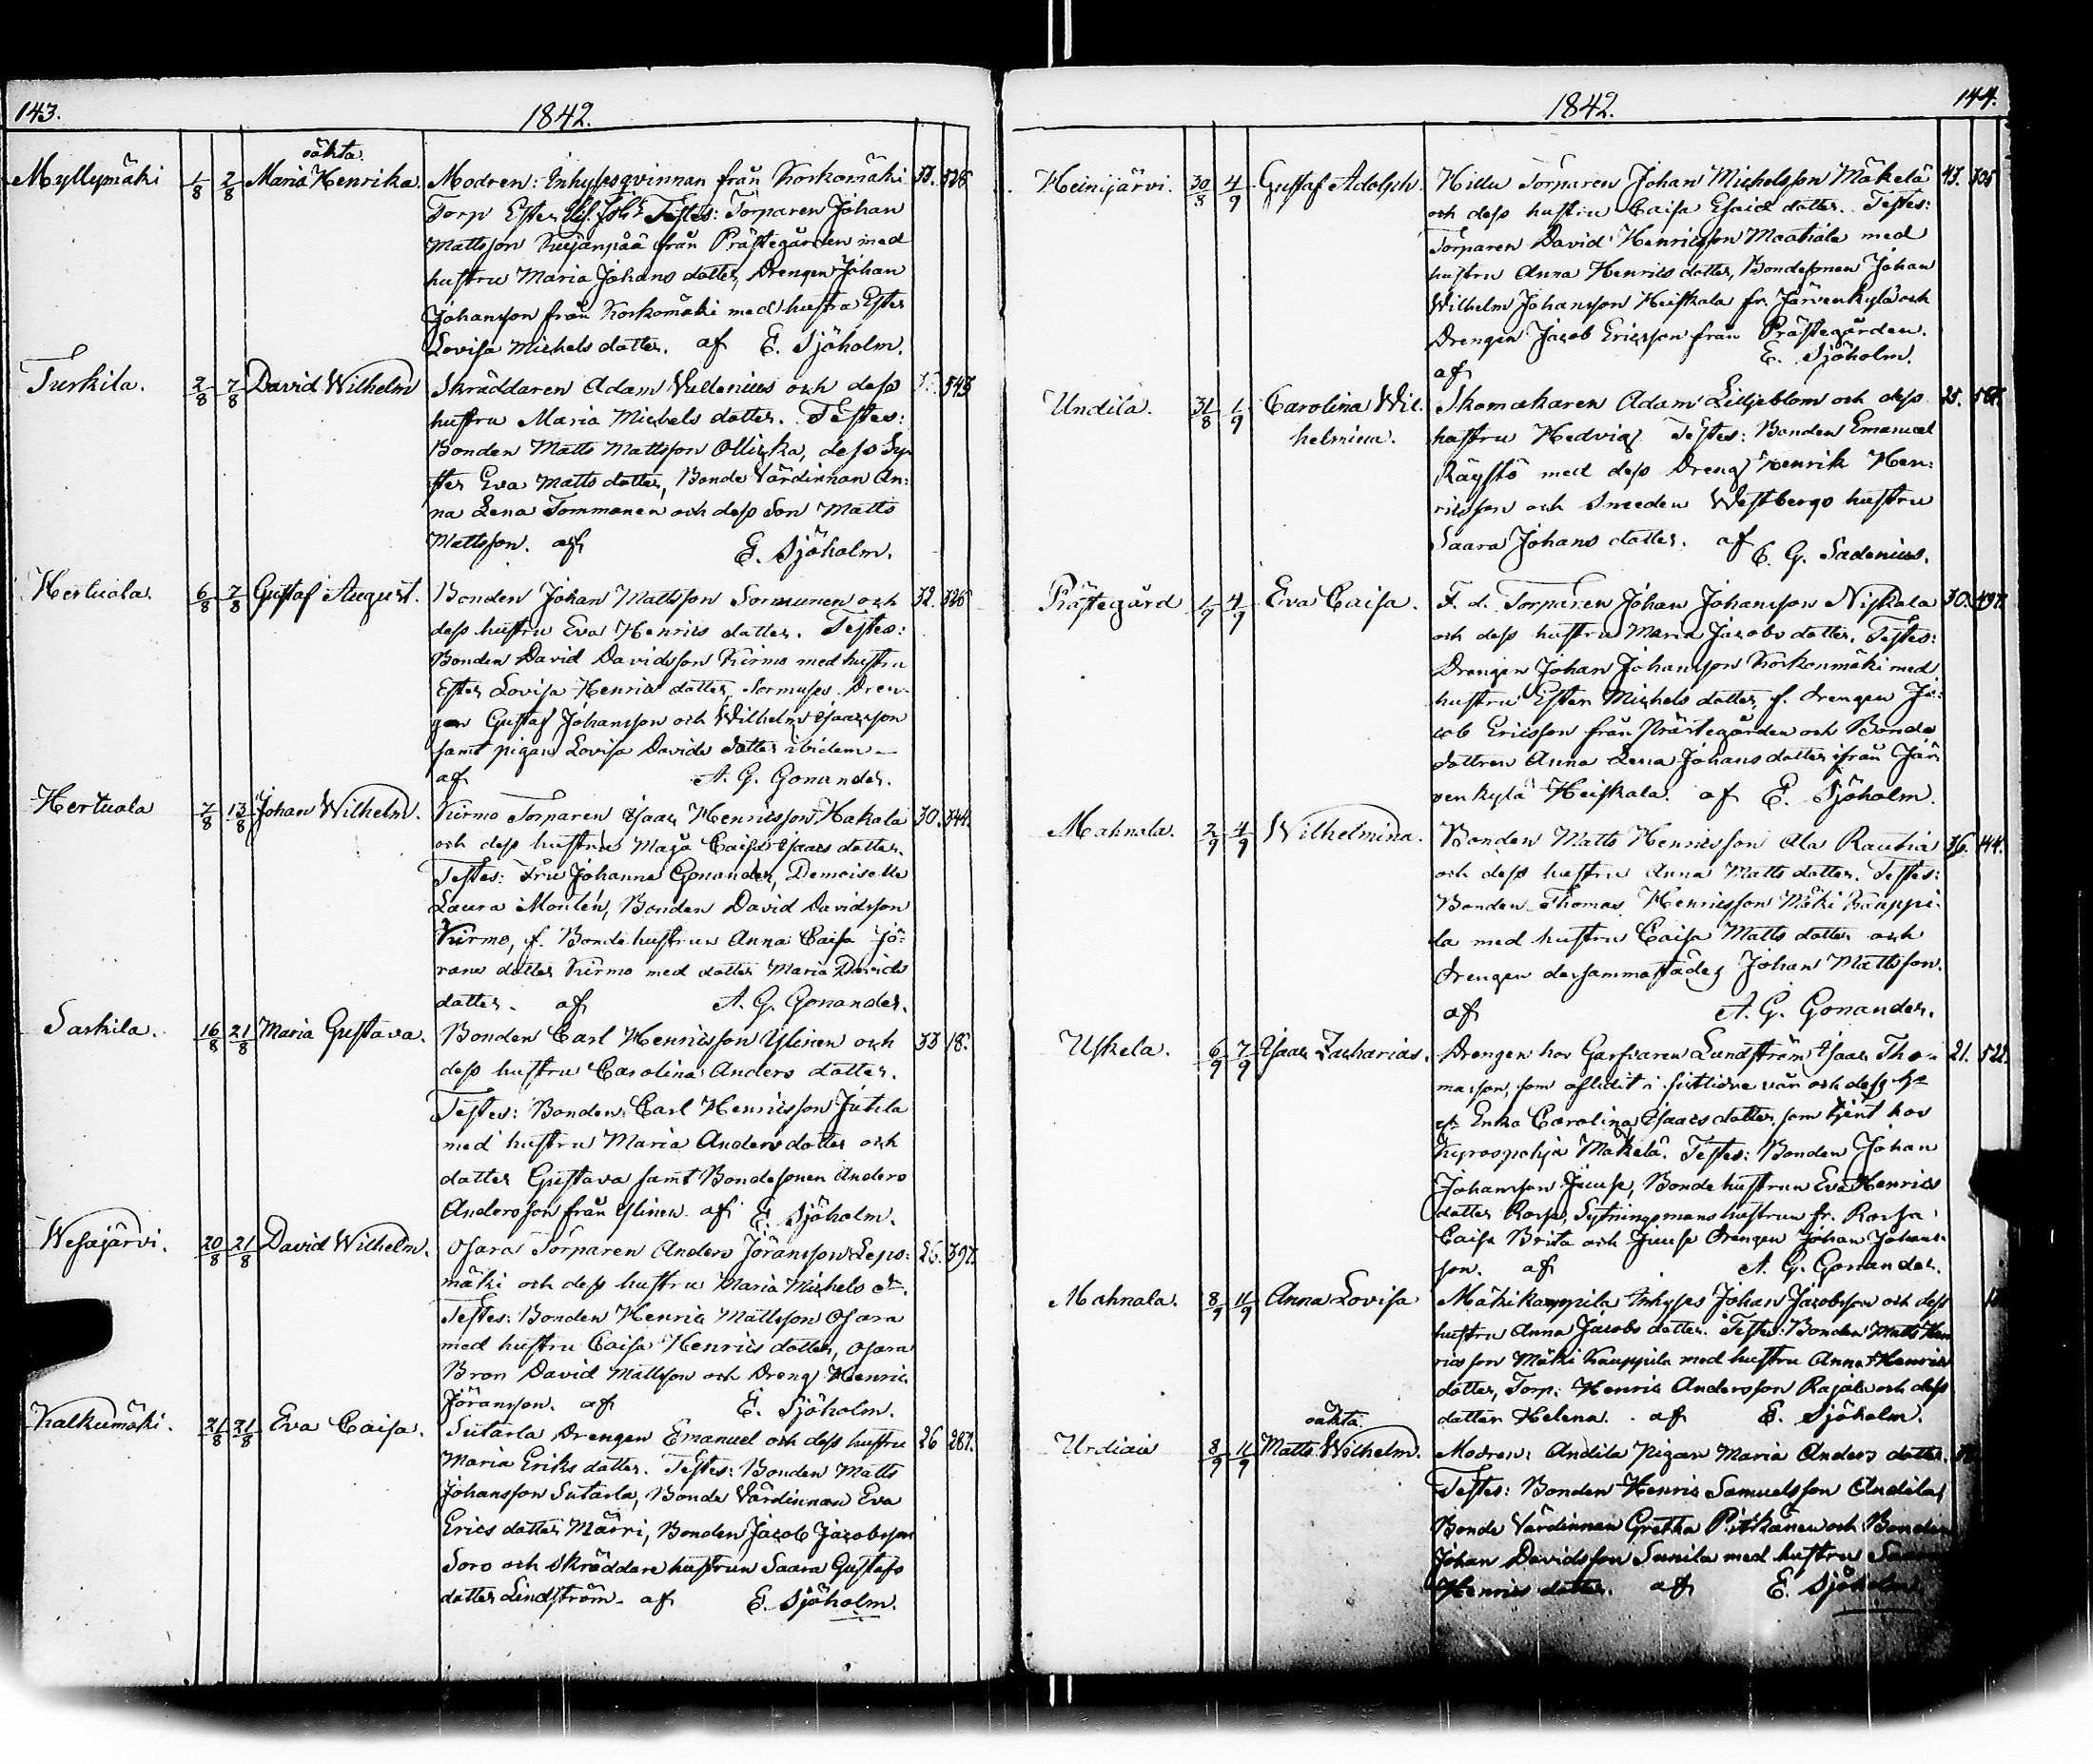 143.
1842.
Myllymäki 1/8 2/8 oäkta Maria Henrika. Modren: Inhysesqvinnan från Korkomäki 38. 526
Torp Ester Testes: Torparen Johan
Mattsson Kujanpää från Prästegården med
hustru Maria Johans dotter, Drengen Johan
Johansson från Korkomäki med hustru Ester
Lovisa Michels dotter. af E. Sjöholm.
Turkila. 2/8 7/8 David Wilhelm Skräddaren Adam Vallenius och dess 543
hustru Maria Michels dotter. Testes:
Bonden Matts Mattsson Ollicka, dess Sy-
ster Eva Matts dotter, Bonde Värdinnan An:
na Lena Tommonen och dess Son Matts
Mattsson. af E. Sjöholm.
Hertuala. 6/8 7/8 Gustaf August. Bonden Johan Mattsson Sormunen och 32. 326
dess hustru Eva Henrics dotter. Testes:
Bonden David Davidsson Kirmo med hustru
Ester Lovisa Henrics dotter, Sormuses Dren-
gar Gustaf Johansson och Wilhelm Isaacsson
samt pigan Lovisa Davids dotter ibidem –
af A. G. Gonander.
Hertuala 7/8 13/8 Johan Wilhelm. Kirmo Torparen Isaac Henricsson Hakala 30. 344.
och dess hustru Maja Caisa Isaacs dotter.
Testes: Fru Johanna Gonander, Demoiselle
Laura Montén, Bonden David Davidsson
Kirmo, f. Bonde hustrun Anna Caisa Jö-
rans dotter Kirmo med dotter Maria Davids
dotter. af A. G. Gonander.
Sarkila. 16/8 21/8 Maria Gustava. Bonden Carl Henricsson Ylinen och 33 18.
dess hustru Carolina Anders dotter.
Testes: Bonden Carl Henricsson Jutila
med hustru Maria Anders dotter och
dotter Gustava samt Bondesonen Anders
Andersson från Ylinen. af E. Sjöholm.
Wesajärvi. 20/8 21/8 David Wilhelm. Osara Torparen Anders Jöransson Lepo: 26. 397.
mäki och dess hustru Maria Michels dr.
Testes: Bonden Henric Mattsson Osara
med hustru Caisa Henrics dotter, Osara
Bron David Mattsson och Dreng Henric
Jöransson. af E. Sjöholm.
Kalkumäki. 21/8 21/8 Eva Caisa. Sutarla Drengen Emanuel och dess hustru 26 287.
Maria Eriks dotter. Testes: Bonden Matts
Johansson Sutarla, Bonde Värdinnan Eva
Erics dotter Märri, Bonden Jacob Jacobsson
Soro och skräddare hustrun Saara Gustafs
dotter Lindström. af E. Sjöholm.
1842.
144.
Heinijärvi. 30/8 4/9 Gustaf Adolph. Hillu Torparen Johan Michelsson Mäkelä 43. 505
och dess hustru Caisa Esaiæ dotter. Testes:
Torparen David Henricsson Maatiala med
hustru Anna Henrics dotter, Bondesonen Johan
Wilhelm Johansson Heiskala fr. Järvenkylä och
Drengen Jacob Ericsson från Prästegården.
af E. Sjöholm.
Undila. 31/8 1/9 Carolina Wil. Skomakaren Adam Liljeblom och dess 25.
helmina. hustru Hedvig. Testes: Bonden Emanuel
Räystö med dess Dreng Henrik Hen:
ricsson och Smeden Westbergs hustru
Saara Johans dotter. af C. G. Sadenius.
Prästegård 1/9 4/9 Eva Caisa. F. d. Torparen Johan Johansson Niskala 30. 497.
och dess hustru Maria Jacobs dotter. Testes:
Drengen Johan Johansson Korkonmäki med
hustru Ester Michels dotter, f. drengen Ja-
cob Ericsson från Prästegården och Bonde
dottren Anna Lena Johans dotter ifrån Jär
venkylä Heiskala. af E. Sjöholm.
Mahnala. 2/9 4/9 Wilhelmina. Bonden Matts Henricsson Ala Rautia 36. 144.
och dess hustru Anna Matts dotter. Testes:
Bonden Thomas Henricsson Mäki Kauppi-
la med hustru Caisa Matts dotter och
drengen dersammastädes Johan Mattsson.
af A. G. Gonander.
Uskela. 6/9 7/9 Isaac Zacharias. Drengen hos Garfvaren Lundström Isaac Tho- 21. 522.
masson, som aflidit i sistlidne vår och dess
Enka Carolina Isaacs dotter, som tjent hos
Kyrospohja Mäkelä. Testes: Bonden Johan
Johansson Juuse, Bonde hustrun Eva Henrics
dotter Rossa, Sytningsmans hustrun fr. Rossa
Caisa Brita och Juuse Drengen Johan Johans-
son. af A. G. Gonander.
Mahnala. 8/9 11/9 Anna Lovisa Mäkikauppila Inhyses Johan Jacobsson och dess
hustru Anna Jacobs dotter. Testes: Bonden Matts Hen
ricsson Mäki Kauppila med hustru Anna Henrics
dotter, Torp. Henric Andersson Rajala och dess
dotter Helena. af E. Sjöholm.
Urdiala 8/9 11/9 oäkta Matts Wilhelm. Modren: Andila Pigan Maria Anders dotter.
Testes: Bonden Henric Samuelsson Andila,
Bonde Värdinnan Gretha Pitkänen och Bonden
Johan Davidsson Sunila med hustru Saara
Henrics dotter. af E. Sjöholm.